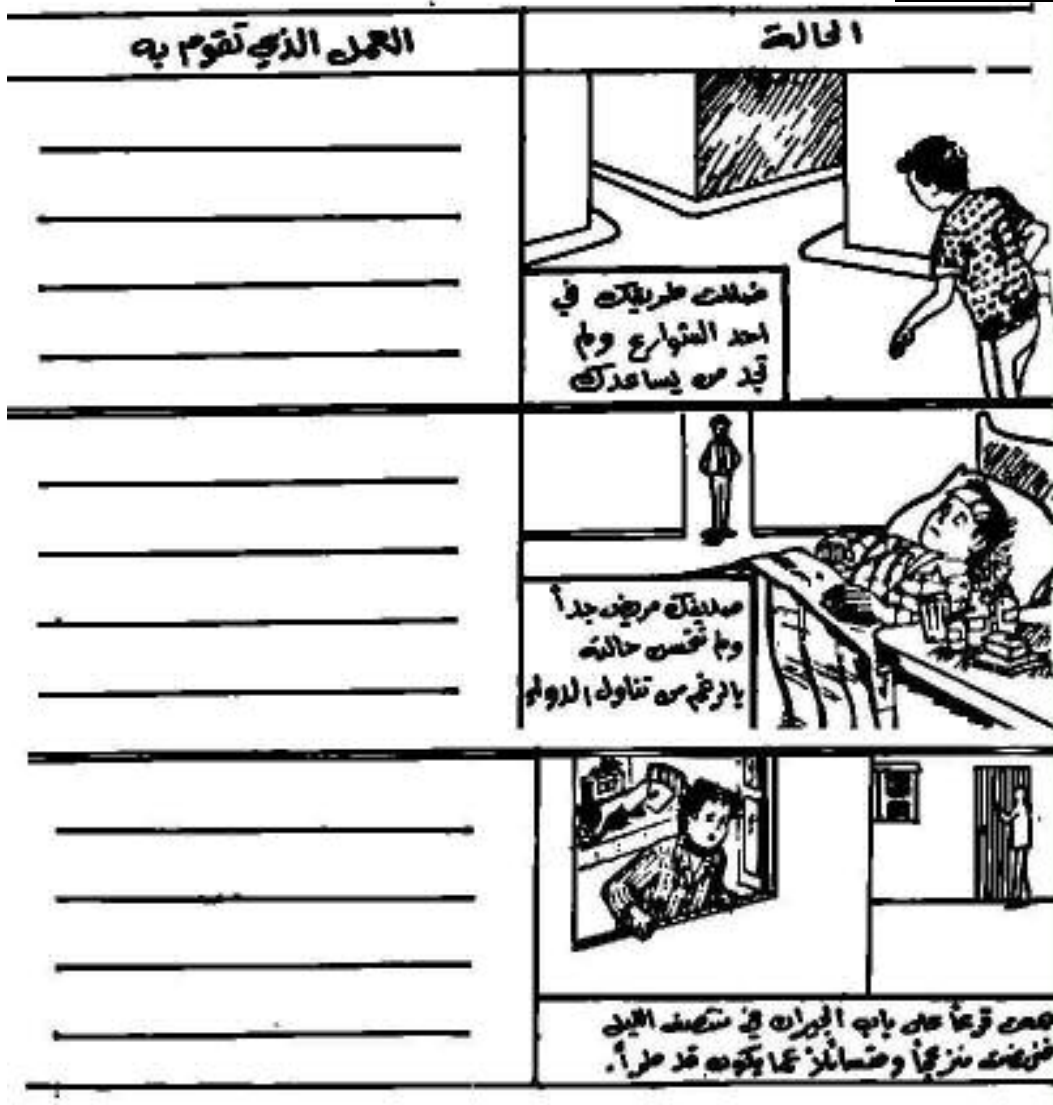 الحالة
العمل الذي تقوم به
ضللت طريقك في
احد الشوارع ولم
تجد من يساعدك
صديقك مريض جداً
ولم تتحسن حالته
بالرغم من تناول الدواء
سمعت قرعاً على باب الجيران في منتصف الليل
فنهضت منزعجاً ومتسائلاً عما يكون قد طرأ.